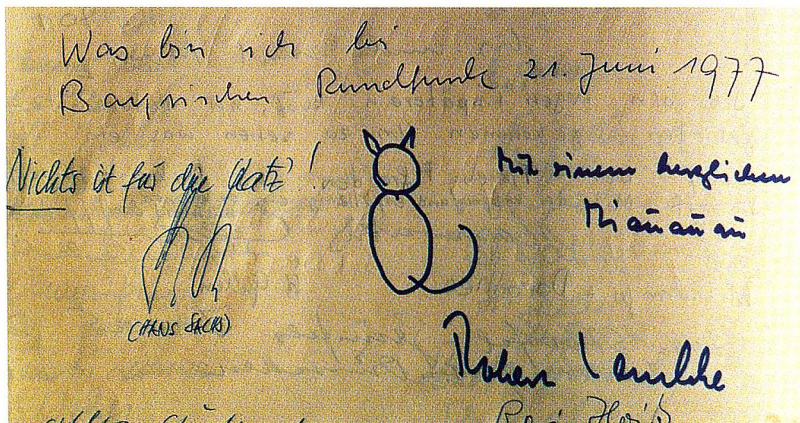 Was bin ich bei
Bayrischen Rundfunk 21. Juni 1977
Nichts ist für die Katz'!
Mit einem herzlichen
Miauauau
(HANS SACHS)
Robert Lembke